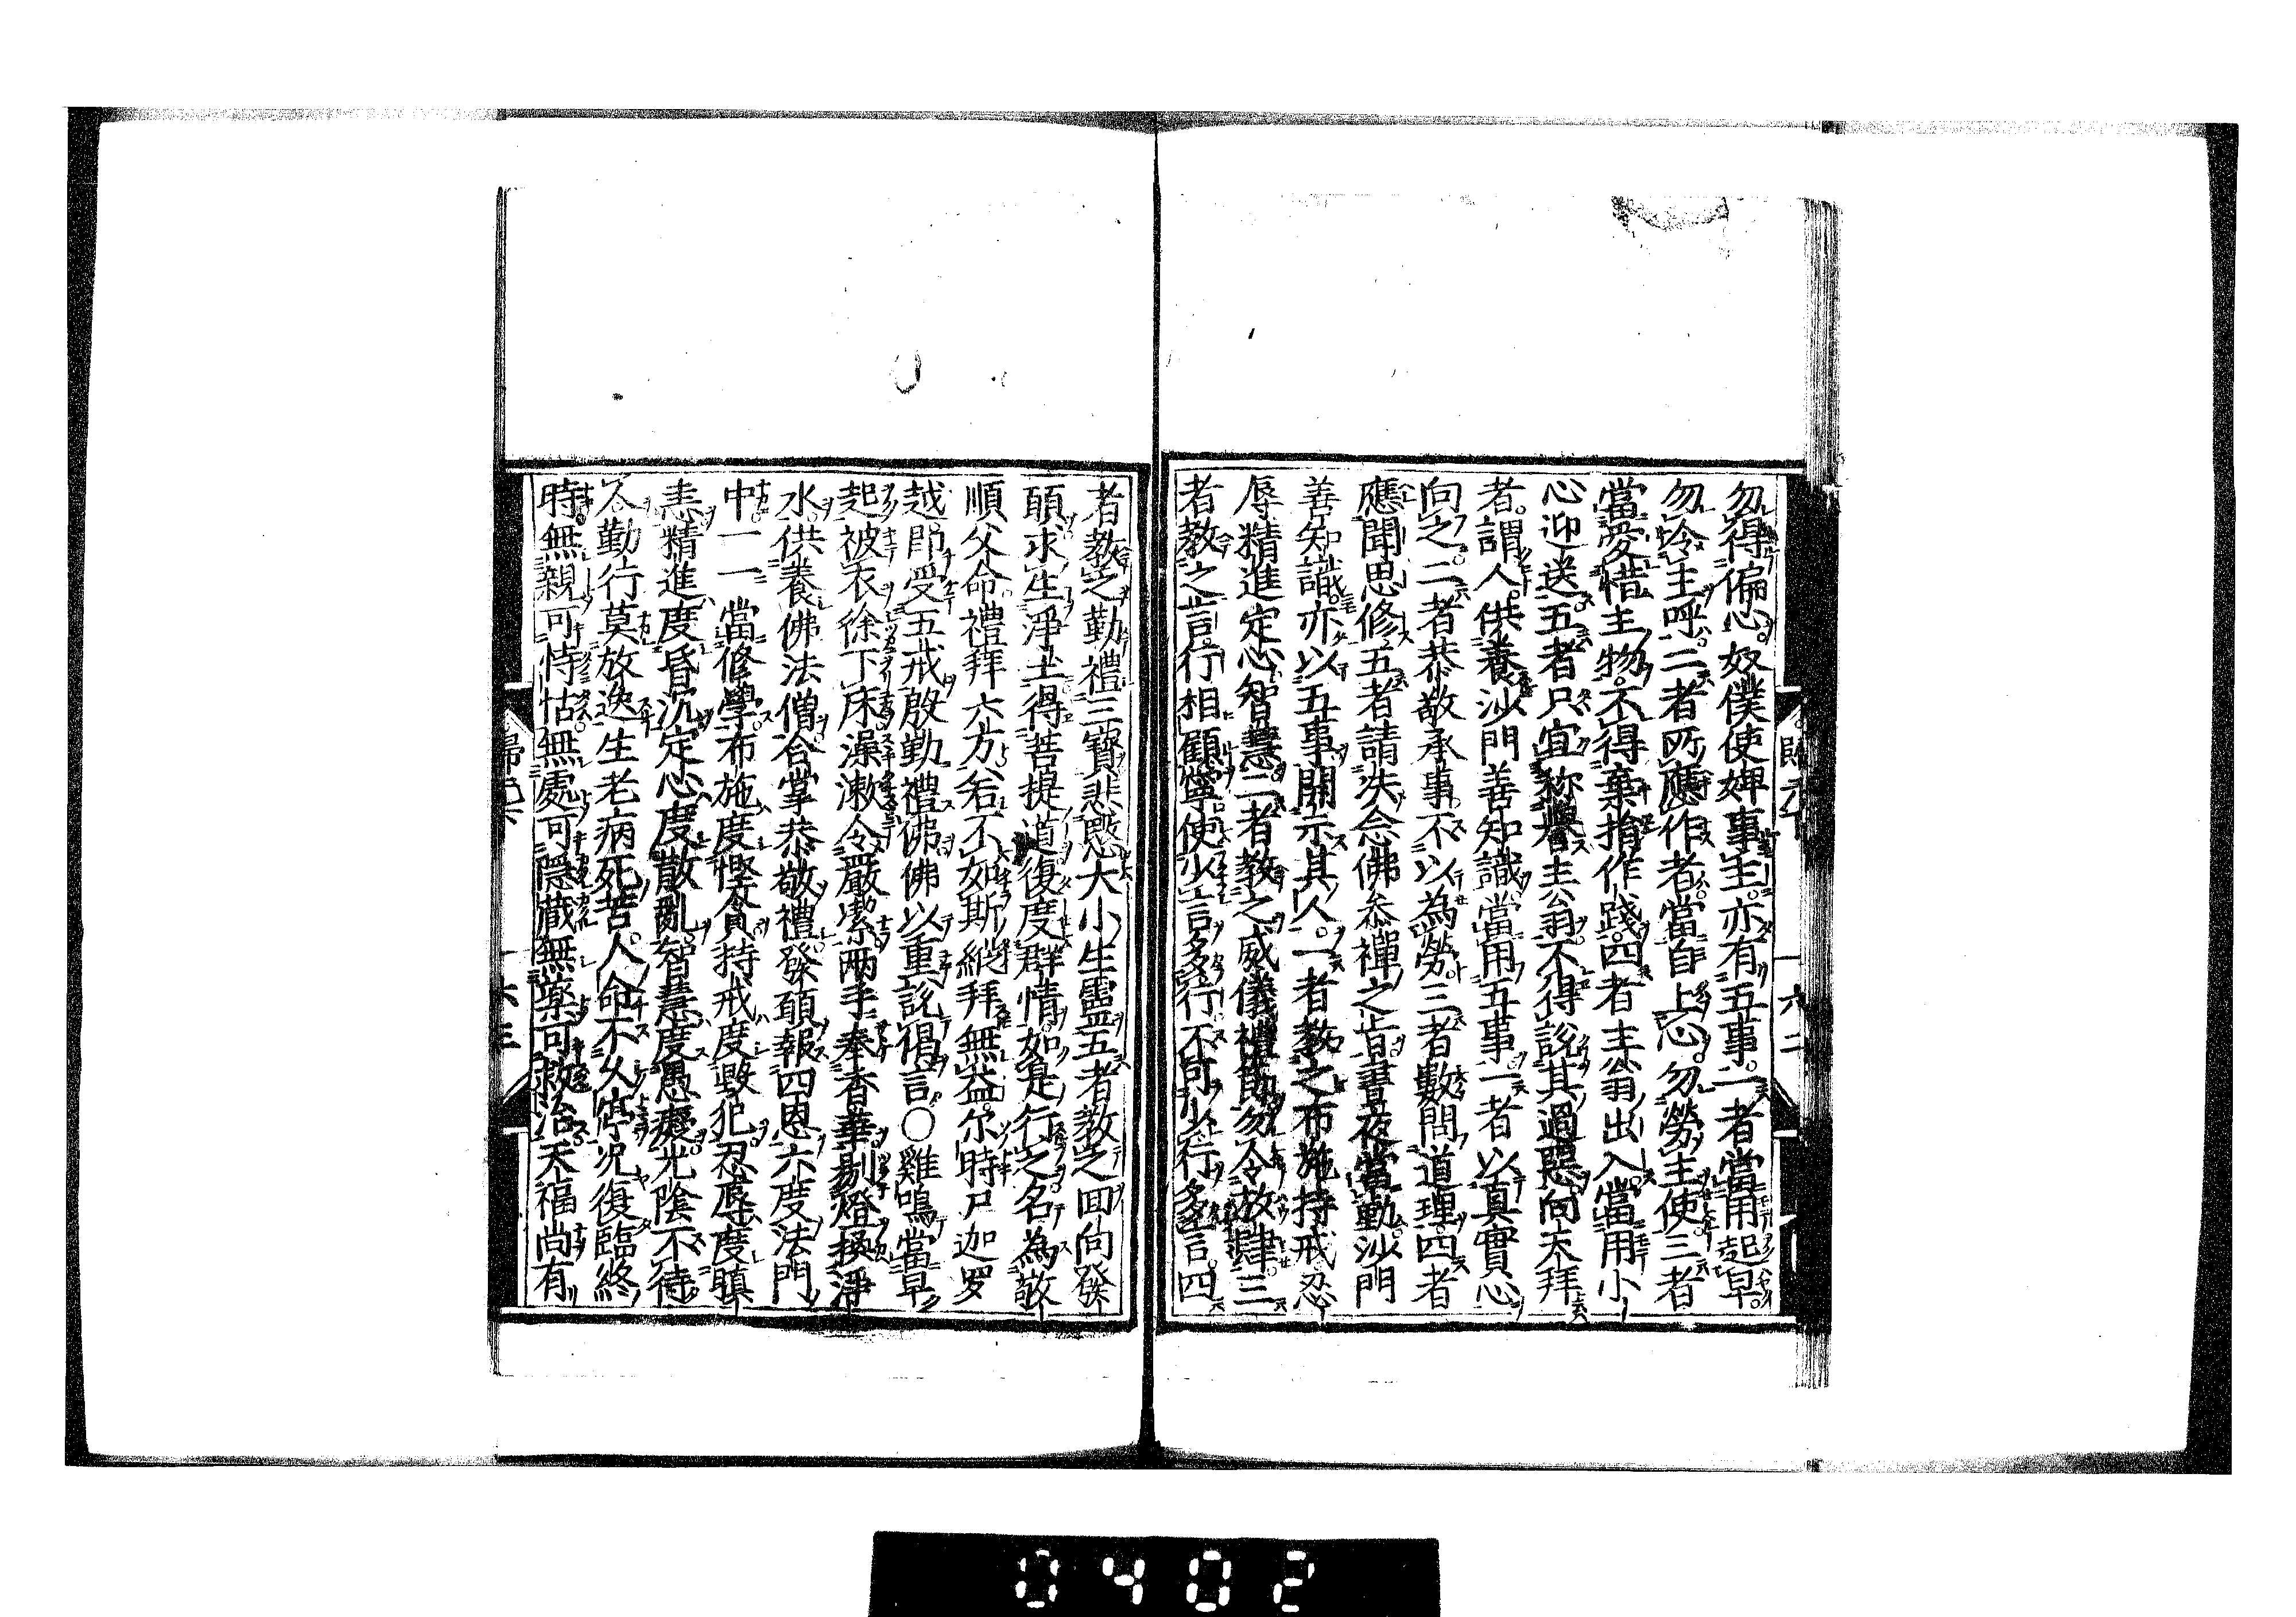 勿得偏心。奴僕使婢事主。亦有五事。一者當用起早。
勿冷主呼。二者所應作者。當自上心。勿勞主使。三者
當愛惜主物。不得棄捐作踐。四者主翁出入當用小
心迎送。五者只宜称譽主公翁。不得說其過惡。向天拜
者。謂人。供養沙門善知識。當用五事。一者以真實心
向之。二者恭敬承事。不以為勞。三者數問道理。四者
應聞思修。五者請决念佛叅禪之旨。晝夜當勤。沙門
善知識。亦以五事。開示其人。一者教之布施持戒忍
辱精進定心智慧。二者教之威儀禮節。勿令放肆。三
者教之言行相顧。寧使少言多行。不可少行多言。四
者教之勤禮三寶悲愍大小生靈。五者教之回向發
願。求生淨土。得菩提道。復度群情。如是行之。名為敬
順父命。禮拜六方。若不如斯。縱拜無益。尒時尸迦罗
越。即受五戒。殷勤禮佛。佛以重說偈言。○雞鳴當早
起被衣徐下床澡漱令嚴潔兩手奉香華剔燈換淨
水。供養佛法僧。合掌恭敬禮。發願報四恩。六度法門
中。一一當修學。布施度慳貪。持戒度毀犯。忍辱度瞋
恚。精進度昏沉。定心度散亂。智慧度愚癡。光陰不待
人。勤行莫放逸。生老病死苦。人命不久停。况復臨終
時。無親可恃怙。無處可隱藏。無藥可救治。天福尚有
一六二
一六三
0402